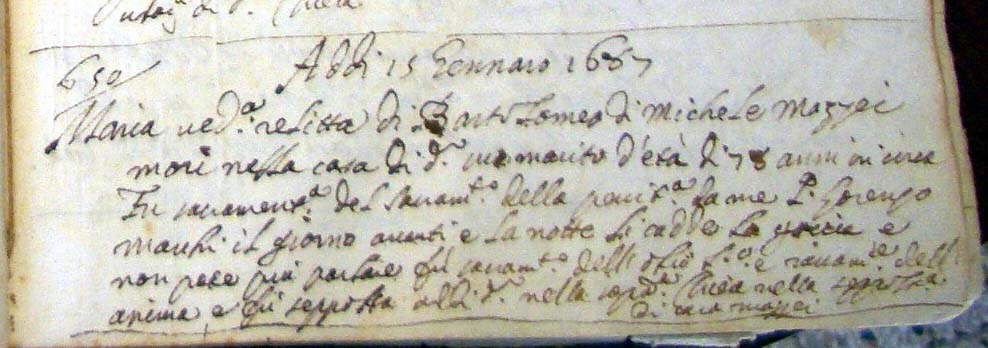 di S. Chiesa
650 Addi 15 Gennaro 1687
Maria ved.a relitta di Bartolomeo di Michele Mazzei
morì nella casa di d.o suo marito d'età di 75 anni in circa
Fu sacament.a del Sacam.to della penit.a da me P. Lorenzo
Marchi il giorno avanti e la notte li cadde la gocia e
non pote più parlare fù sacam.ta dell'olio S.to e racom.ta dell
anima e fù seppolta addi d.o nella sopd.a Chiesa nella seppoltura
di casa Mazzei